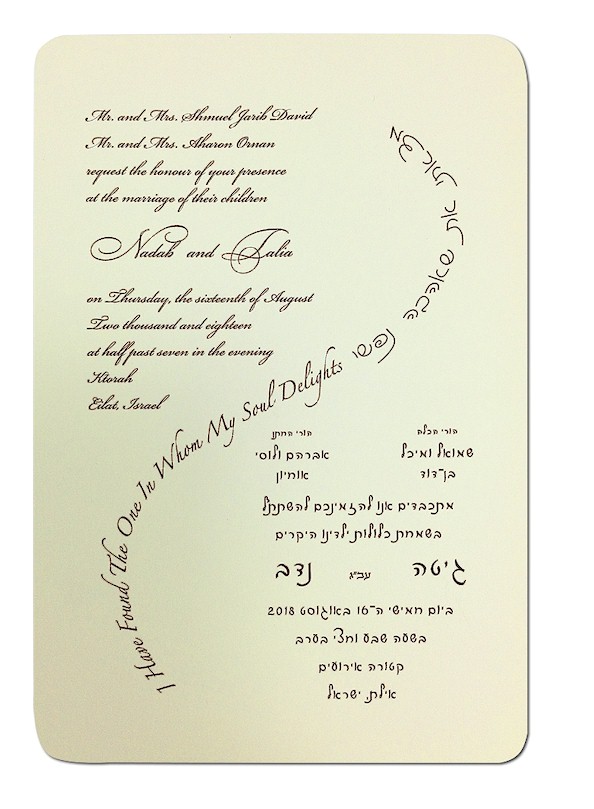 Mr. and Mrs. Shmuel Jarib David
Mr. and Mrs. Aharon Ornan
request the honour of your presence
at the marriage of their children
Nadab and Talia
on Thursday, the sixteenth of August
Two thousand and eighteen
at half past seven in the evening
Ktorah
Eilat, Israel
I Have Found The One In Whom My Soul Delights
מצאתי את שאהבה נפשי
הורי הכלה הורי החתן
שמואל ומיכל אברהם ולוסי
בן־דוד אוחיון
מתכבדים אנו להזמינכם להשתתף
בשמחת כלולות ילדינו היקרים
גיטה עב״ג נדב
ביום חמישי ה־16 באוגוסט 2018
בשעה שבע וחצי בערב
קטורה אירועים
אילת, ישראל